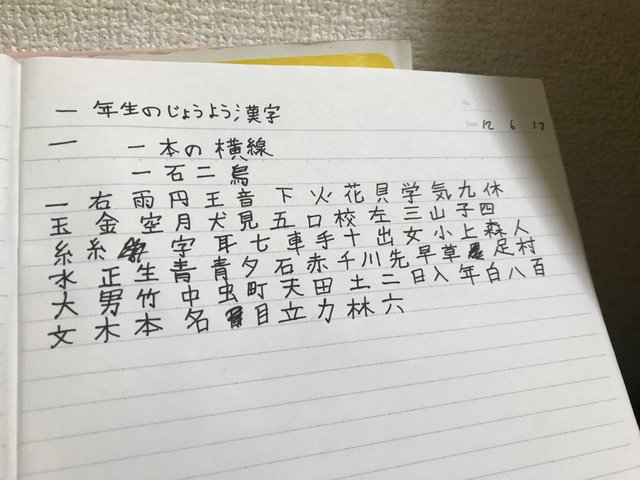 No.
Date 12 6 17
一年生のじょうよう漢字
一 一本の横線
一石二鳥
一右雨円王音下火花貝学気九休
玉金空月犬見五口校左三山子四
糸糸字耳七車手十出女小上森人
水正生青青夕石赤千川先早草足村
大男竹中虫町天田土二日入年白八百
文木本名目立力林六